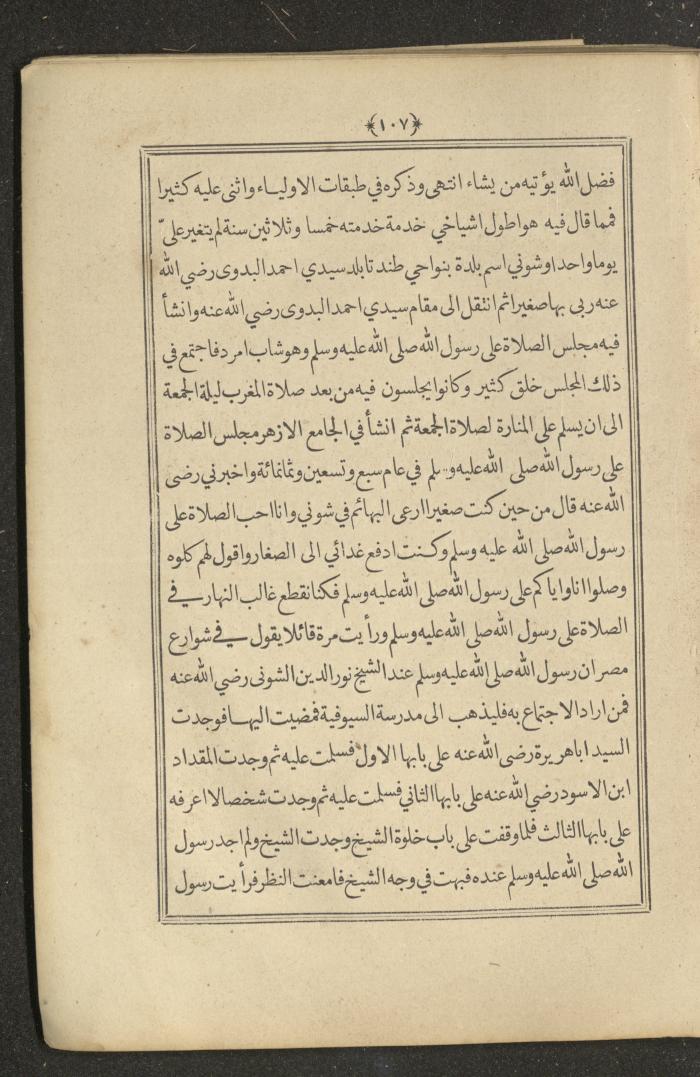 ﴿١٠٧﴾
فضل الله يؤتيه من يشاء انتهى وذكره في طبقات الاولياء واثنى عليه كثيرا
فمما قال فيه هو اطول اشياخي خدمة خدمته خمسا وثلاثين سنة لم يتغير علىّ
يوما واحدا وشوني اسم بلدة بنواحي طندتا بلد سيدي احمد البدوى رضي الله
عنه ربى بها صغيرا ثم انتقل الى مقام سيدي احمد البدوى رضي الله عنه وانشأ
فيه مجلس الصلاة على رسول الله صلى الله عليه وسلم وهو شاب امرد فاجتمع في
ذلك المجلس خلق كثير وكانوا يجلسون فيه من بعد صلاة المغرب ليلة الجمعة
الى ان يسلم على المنارة لصلاة الجمعة ثم انشأ في الجامع الازهر مجلس الصلاة
على رسول الله صلى الله عليه وسلم في عام سبع وتسعين وثمانمائة واخبرني رضى
الله عنه قال من حين كنت صغيرا ارعى البهائم في شوني وانا احب الصلاة على
رسول الله صلى الله عليه وسلم وكنت ادفع غدائي الى الصغار واقول لهم كلوه
وصلوا انا واياكم على رسول الله صلى الله عليه وسلم فكنا نقطع غالب النهار في
الصلاة على رسول الله صلى الله عليه وسلم ورأيت مرة قائلا يقول في شوارع
مصر ان رسول الله صلى الله عليه وسلم عند الشيخ نور الدين الشونى رضي الله عنه
فمن اراد الاجتماع به فليذهب الى مدرسة السيوفية فمضيت اليها فوجدت
السيد ابا هريرة رضى الله عنه على بابها الاول فسلمت عليه ثم وجدت المقداد
ابن الاسود رضي الله عنه على بابها الثاني فسلمت عليه ثم وجدت شخصا لا اعرفه
على بابها الثالث فلما وقفت على باب خلوة الشيخ وجدت الشيخ ولم اجد رسول
الله صلى الله عليه وسلم عنده فبهت في وجه الشيخ فامعنت النظر فرأيت رسول